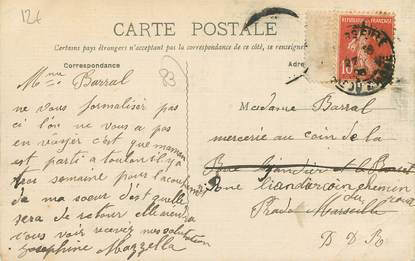 12€
CARTE POSTALE
Certains pays étrangers n'acceptent pas la correspondance de ce côté, se renseigner
Correspondance
Adre
RÉPUBLIQUE FRANÇAISE
10
83
Mme Barral
ne vous formalisez pas
ci l'on ne vous a pas
envoyer c'est que maman
est parti a toulon il y a
trois semaine pour l'acouchement
de ma soeur d'est quelle
sera de retour elle viendra
vous voir recevez mes salutation
Josephine Mazzella
Madame Barral
mercerie au coin de la
Rue
Rue liandier chemin
du
Prado Marseille
B D R